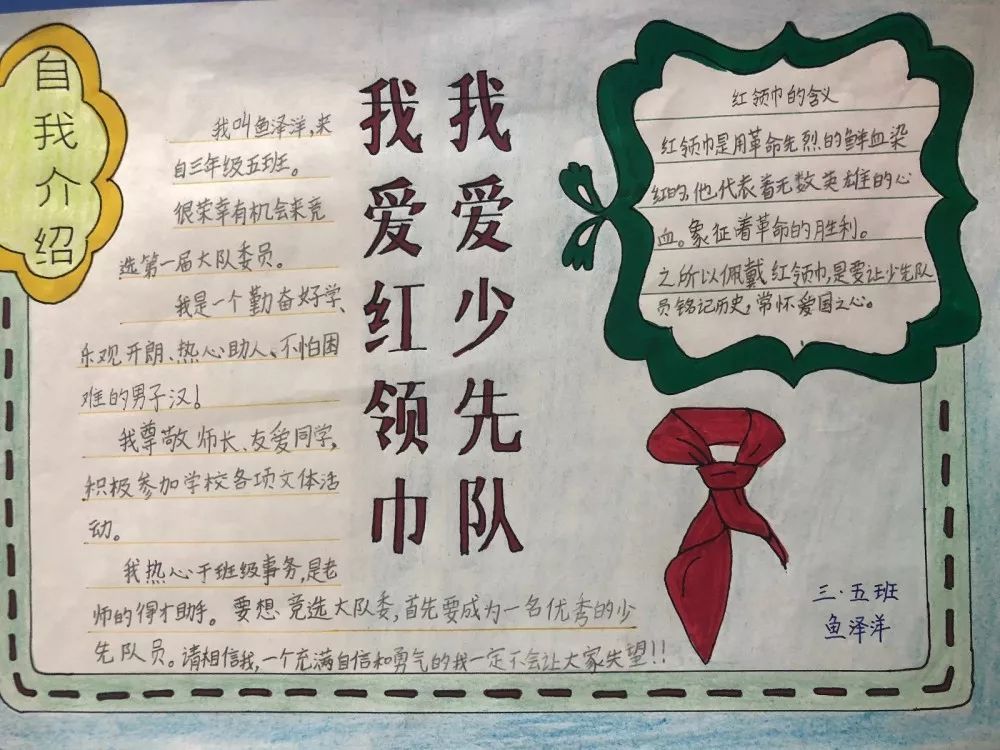 自我介绍
我叫鱼泽洋,来
自三年级五班。
很荣幸有机会来竞
选第一届大队委员。
我是一个勤奋好学、
乐观开朗、热心助人、不怕困
难的男子汉!
我尊敬师长、友爱同学,
积极参加学校各项文体活
动。
我热心于班级事务,是老
师的得才助手。要想竞选大队委,首先要成为一名优秀的少
先队员。请相信我,一个充满自信和勇气的我一定不会让大家失望!!
我爱少先队
我爱红领巾
红领巾的含义
红领巾是用革命先烈的鲜血染
红的,他代表着无数英雄的心
血。象征着革命的胜利。
之所以佩戴红领巾,是要让少先队
员铭记历史,常怀爱国之心。
三·五班
鱼泽洋